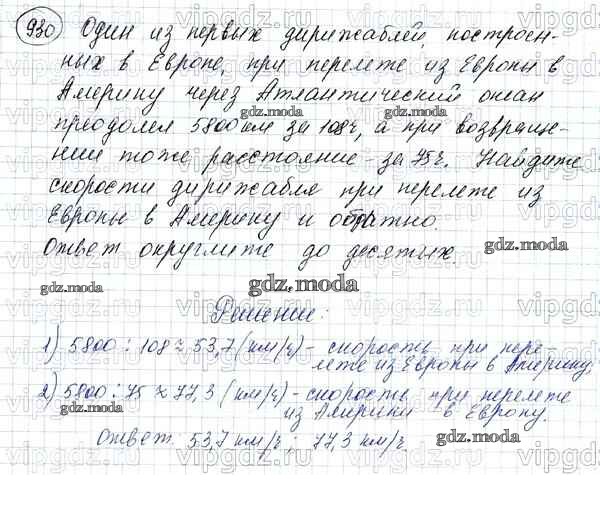 930 Один из первых дирижаблей, построен-
ных в Европе, при перелете из Европы в
Америку через Атлантический океан
преодолел 5800 км за 108 ч, а при возвраще-
нии тоже расстояние - за 75 ч. Найдите
скорости дирижабля при перелете из
Европы в Америку и обратно.
Ответ округлите до десятых.
Решение:
1) 5800 : 108 ≈ 53,7 (км/ч) - скорость при пере-
лете из Европы в Америку;
2) 5800 : 75 ≈ 77,3 (км/ч) - скорость при перелете
из Америки в Европу.
Ответ. 53,7 км/ч ; 77,3 км/ч
gdz.moda
vipgdz.ru